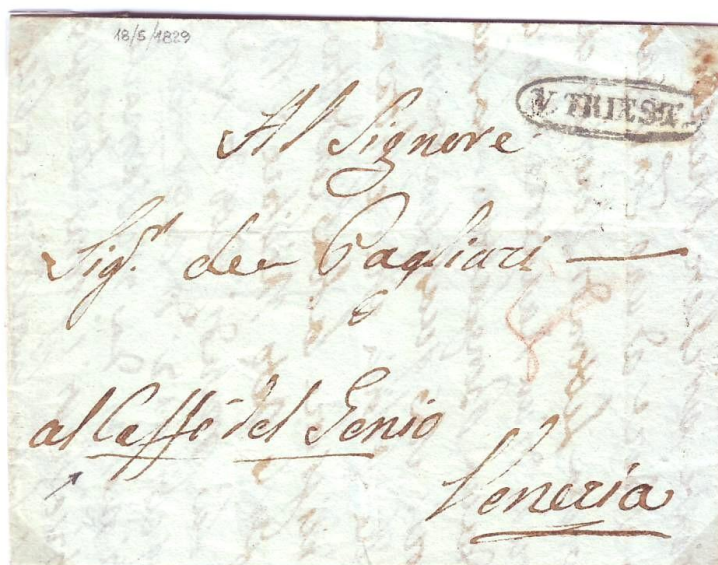 18/5/1829
V. TRIEST.
Al Signore
Sig.r dei Pagliari
al Caffè del Genio
Venezia